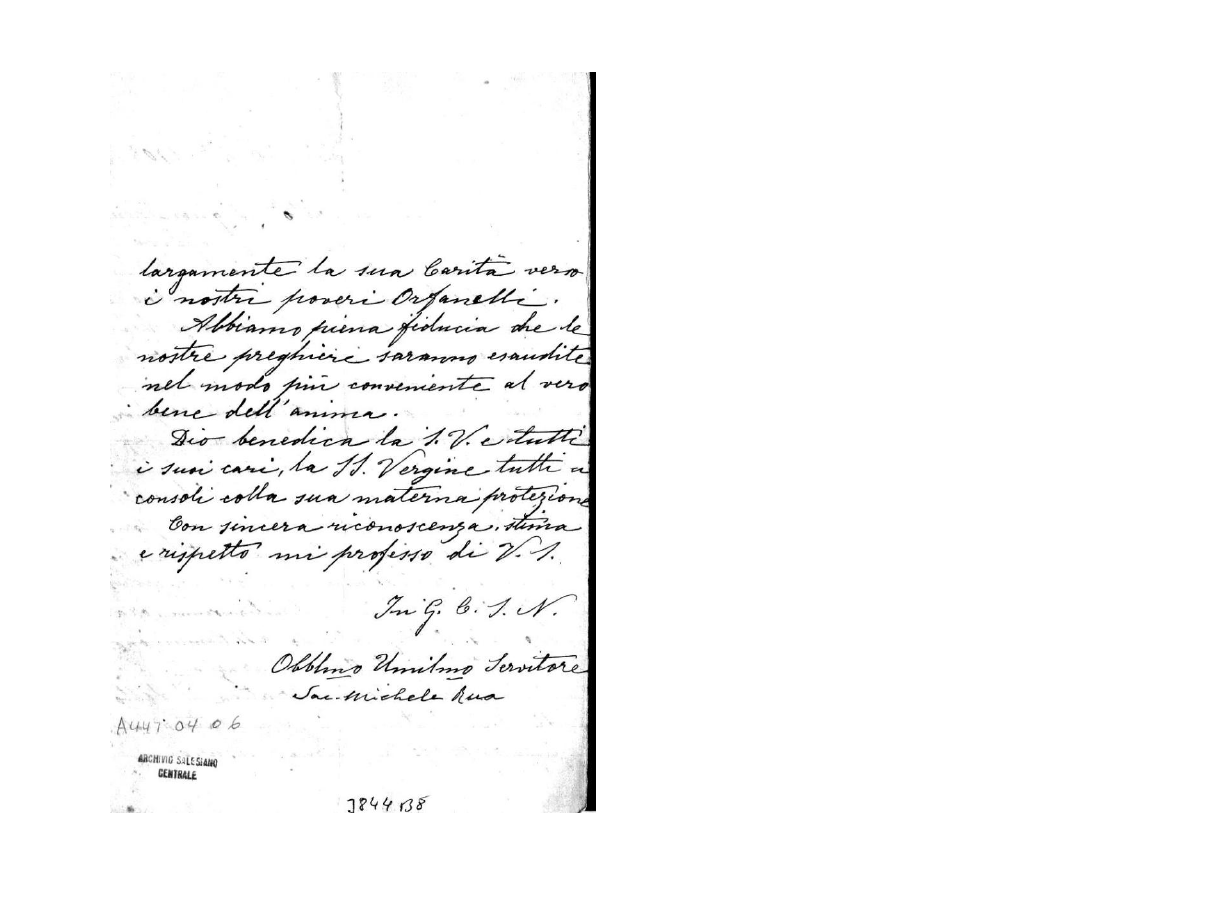 largamente la sua Carità verso
i nostri poveri Orfanelli.
Abbiamo piena fiducia che le
nostre preghiere saranno esaudite
nel modo più conveniente al vero
bene dell'anima.
Dio benedica la S. V. e tutti
i suoi cari, la SS. Vergine tutti
consoli colla sua materna protezione
Con sincera riconoscenza, stima
e rispetto mi professo di V. S.
In G. C. S. N.
Obblmo Umilmo Servitore
Sac. Michele Rua
A447 04 06
ARCHIVIO SALESIANO
CENTRALE
3844 B8